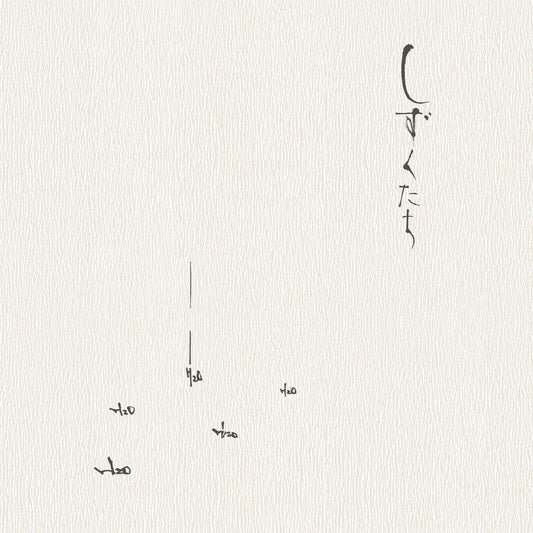 しずくたち
H2O
H2O
H2O
H2O
H2O